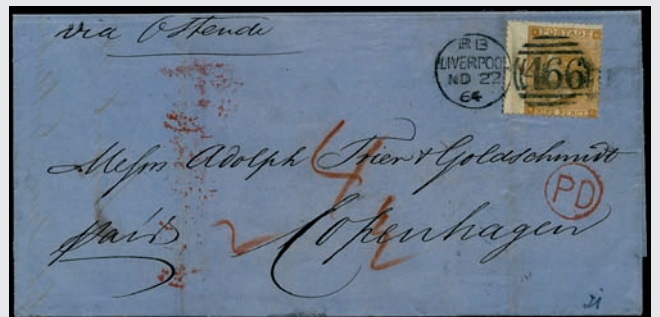 via Ostende
BB
LIVERPOOL
NO 22
64
466
POSTAGE
NINE PENCE
Messrs Adolph Trier & Goldschmidt
4
PD
paid
Copenhagen